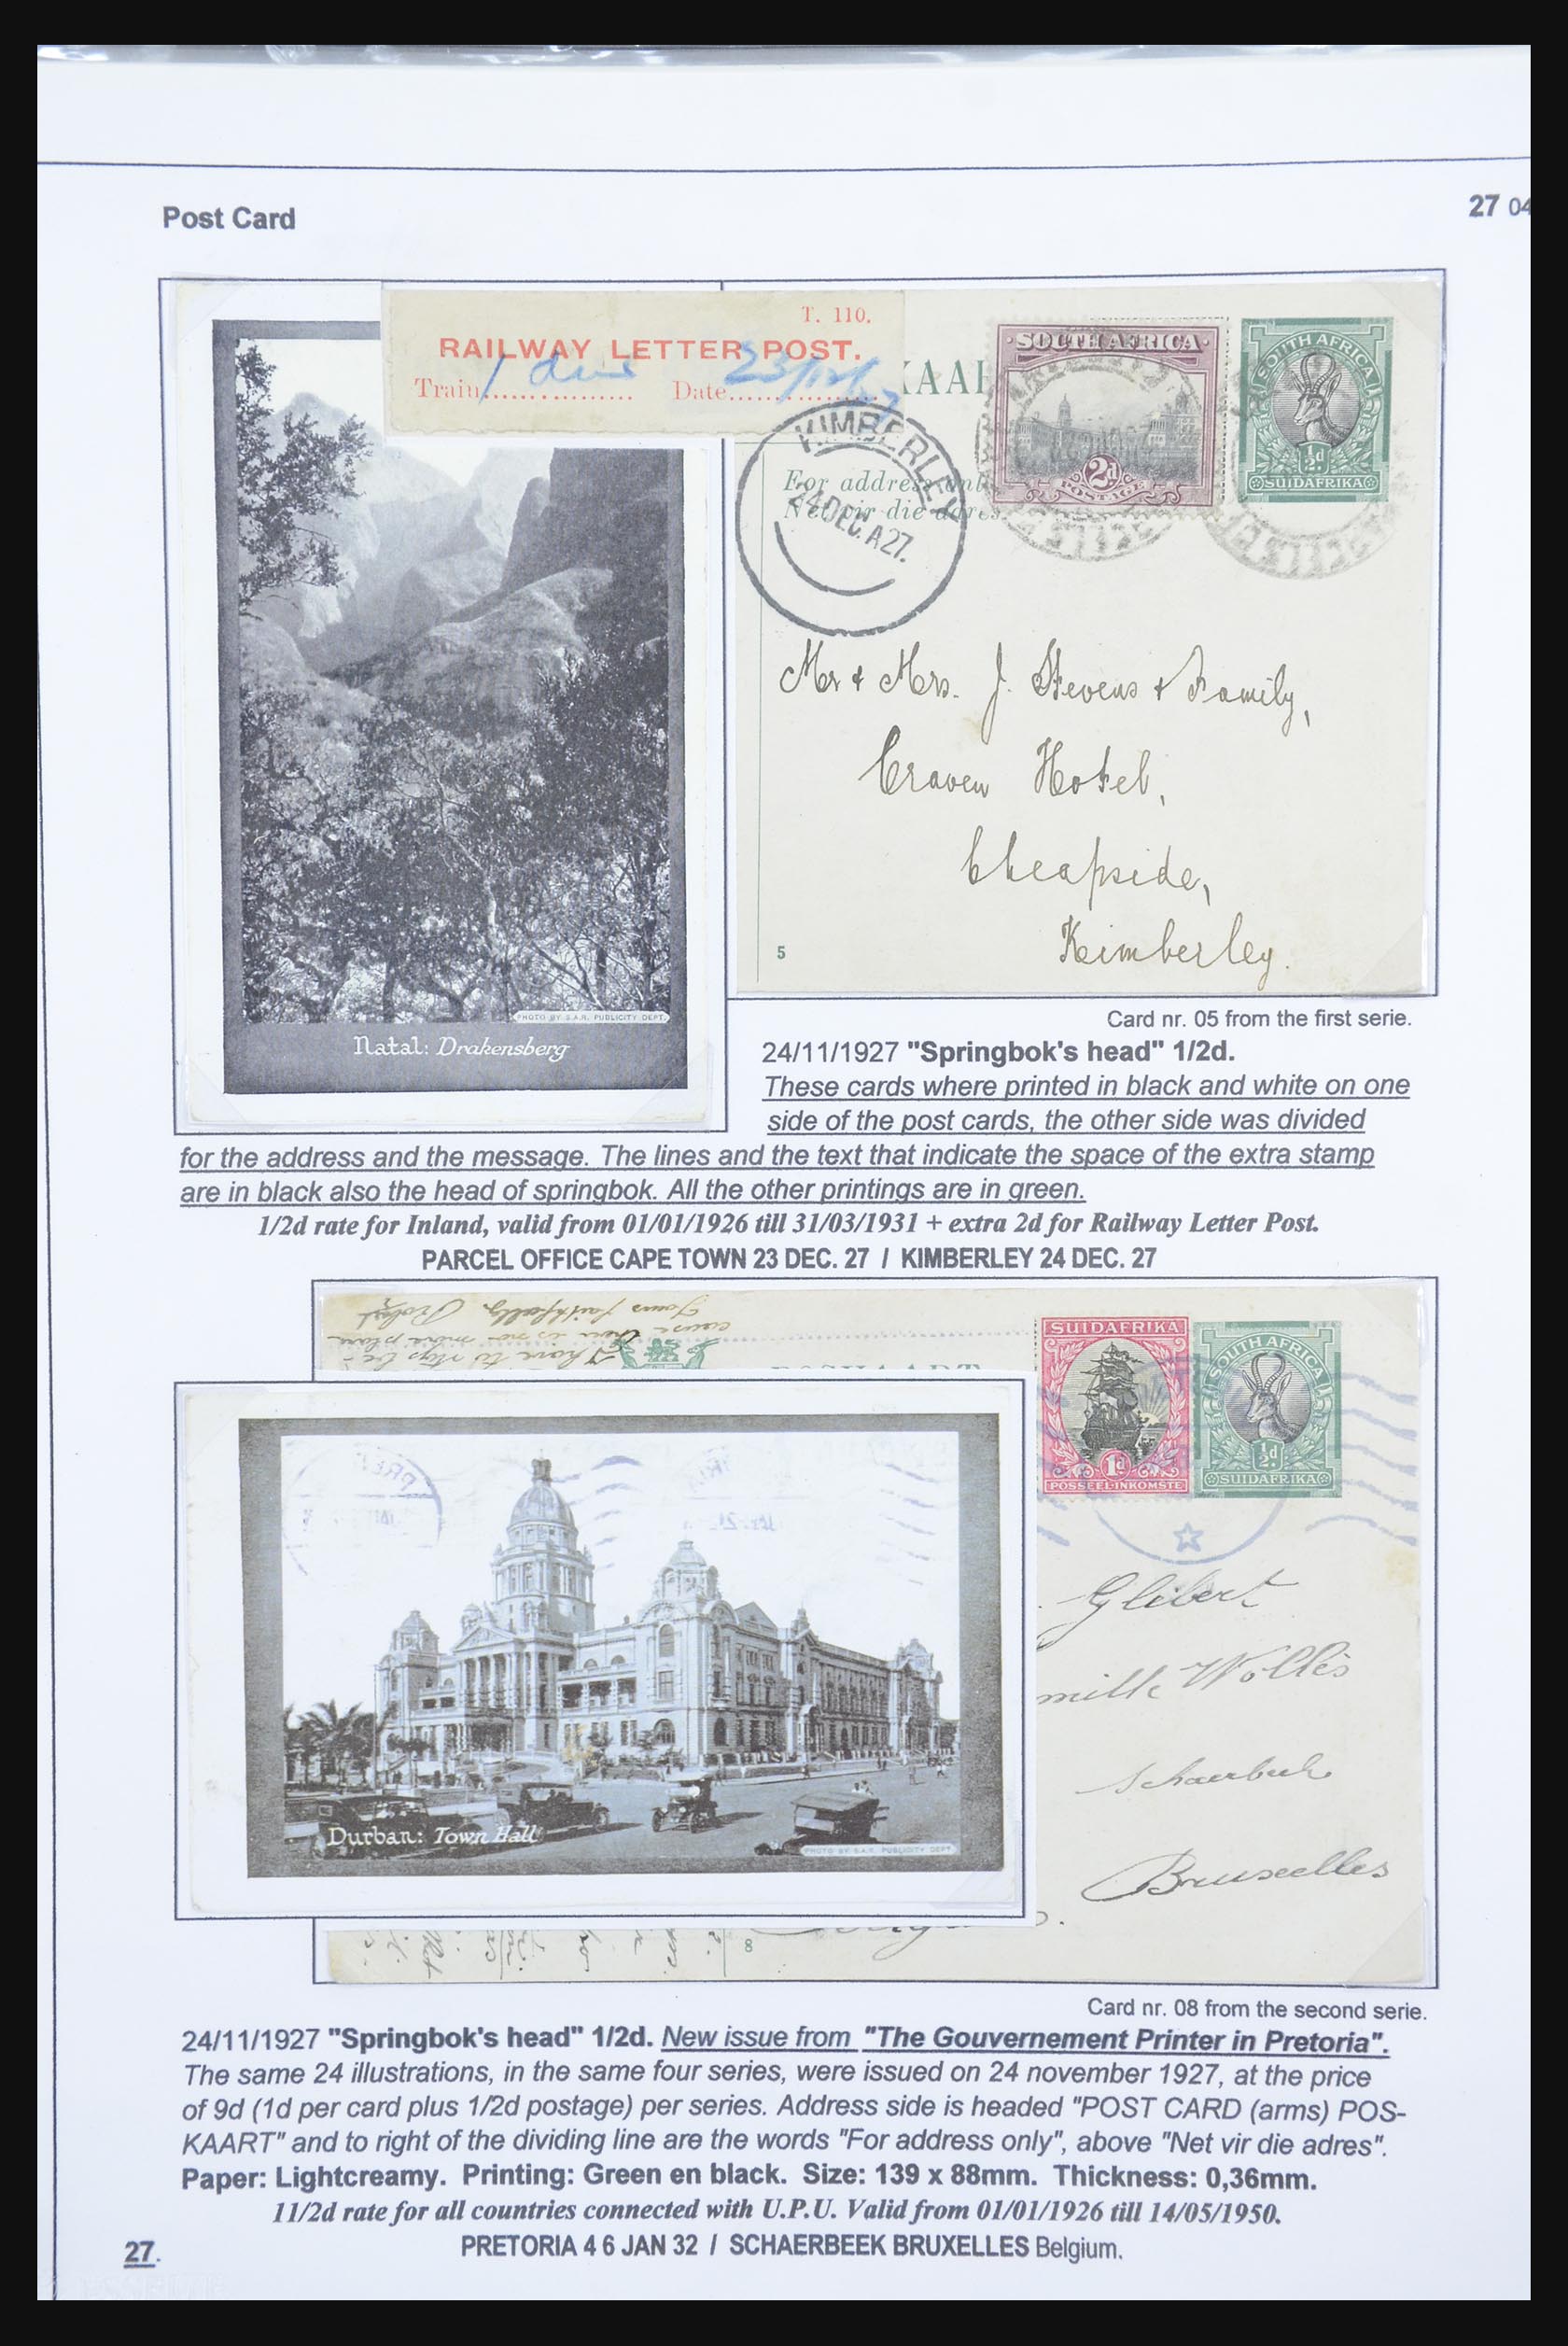 Post Card
27 04
T. 110.
RAILWAY LETTER POST.
Train 1 due Date 23/12/27
KAAR
SOUTH AFRICA
2d
POSTAGE
SOUTH AFRICA
½d
SUIDAFRIKA
KIMBERLEY
24 DEC. A 27.
For address onl
Net vir die adres.
Mr & Mrs. J. Stevens & Family,
Craven Hotel,
Cheapside,
Kimberley.
5
PHOTO BY S.A.R. PUBLICITY DEPT.
Natal: Drakensberg
Card nr. 05 from the first serie.
24/11/1927 "Springbok's head" 1/2d.
These cards where printed in black and white on one
side of the post cards, the other side was divided
for the address and the message. The lines and the text that indicate the space of the extra stamp
are in black also the head of springbok. All the other printings are in green.
1/2d rate for Inland, valid from 01/01/1926 till 31/03/1931 + extra 2d for Railway Letter Post.
PARCEL OFFICE CAPE TOWN 23 DEC. 27 / KIMBERLEY 24 DEC. 27
I have to stop be-
cause there is no more place
Yours faithfully
SUIDAFRIKA
1d
POSSEEL-INKOMSTE
SOUTH AFRICA
½d
SUIDAFRIKA
Glibert
Schaerbeek
Bruxelles
8
Durban: Town Hall
PHOTO BY S.A.R. PUBLICITY DEPT.
Card nr. 08 from the second serie.
24/11/1927 "Springbok's head" 1/2d. New issue from "The Gouvernement Printer in Pretoria".
The same 24 illustrations, in the same four series, were issued on 24 november 1927, at the price
of 9d (1d per card plus 1/2d postage) per series. Address side is headed "POST CARD (arms) POS-
KAART" and to right of the dividing line are the words "For address only", above "Net vir die adres".
Paper: Lightcreamy. Printing: Green en black. Size: 139 x 88mm. Thickness: 0,36mm.
11/2d rate for all countries connected with U.P.U. Valid from 01/01/1926 till 14/05/1950.
PRETORIA 4 6 JAN 32 / SCHAERBEEK BRUXELLES Belgium.
27.